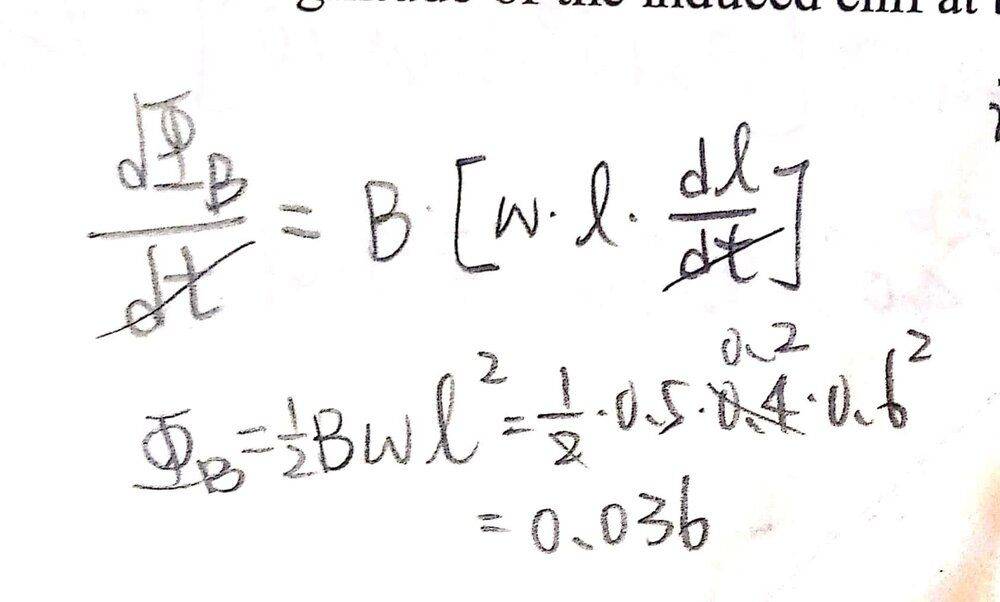 of the induced emf at
dΦ_B/dt = B·[w·l·dl/dt]
Φ_B = 1/2 Bwl² = 1/2·0.5·0.4·0.6²
0.2
= 0.036